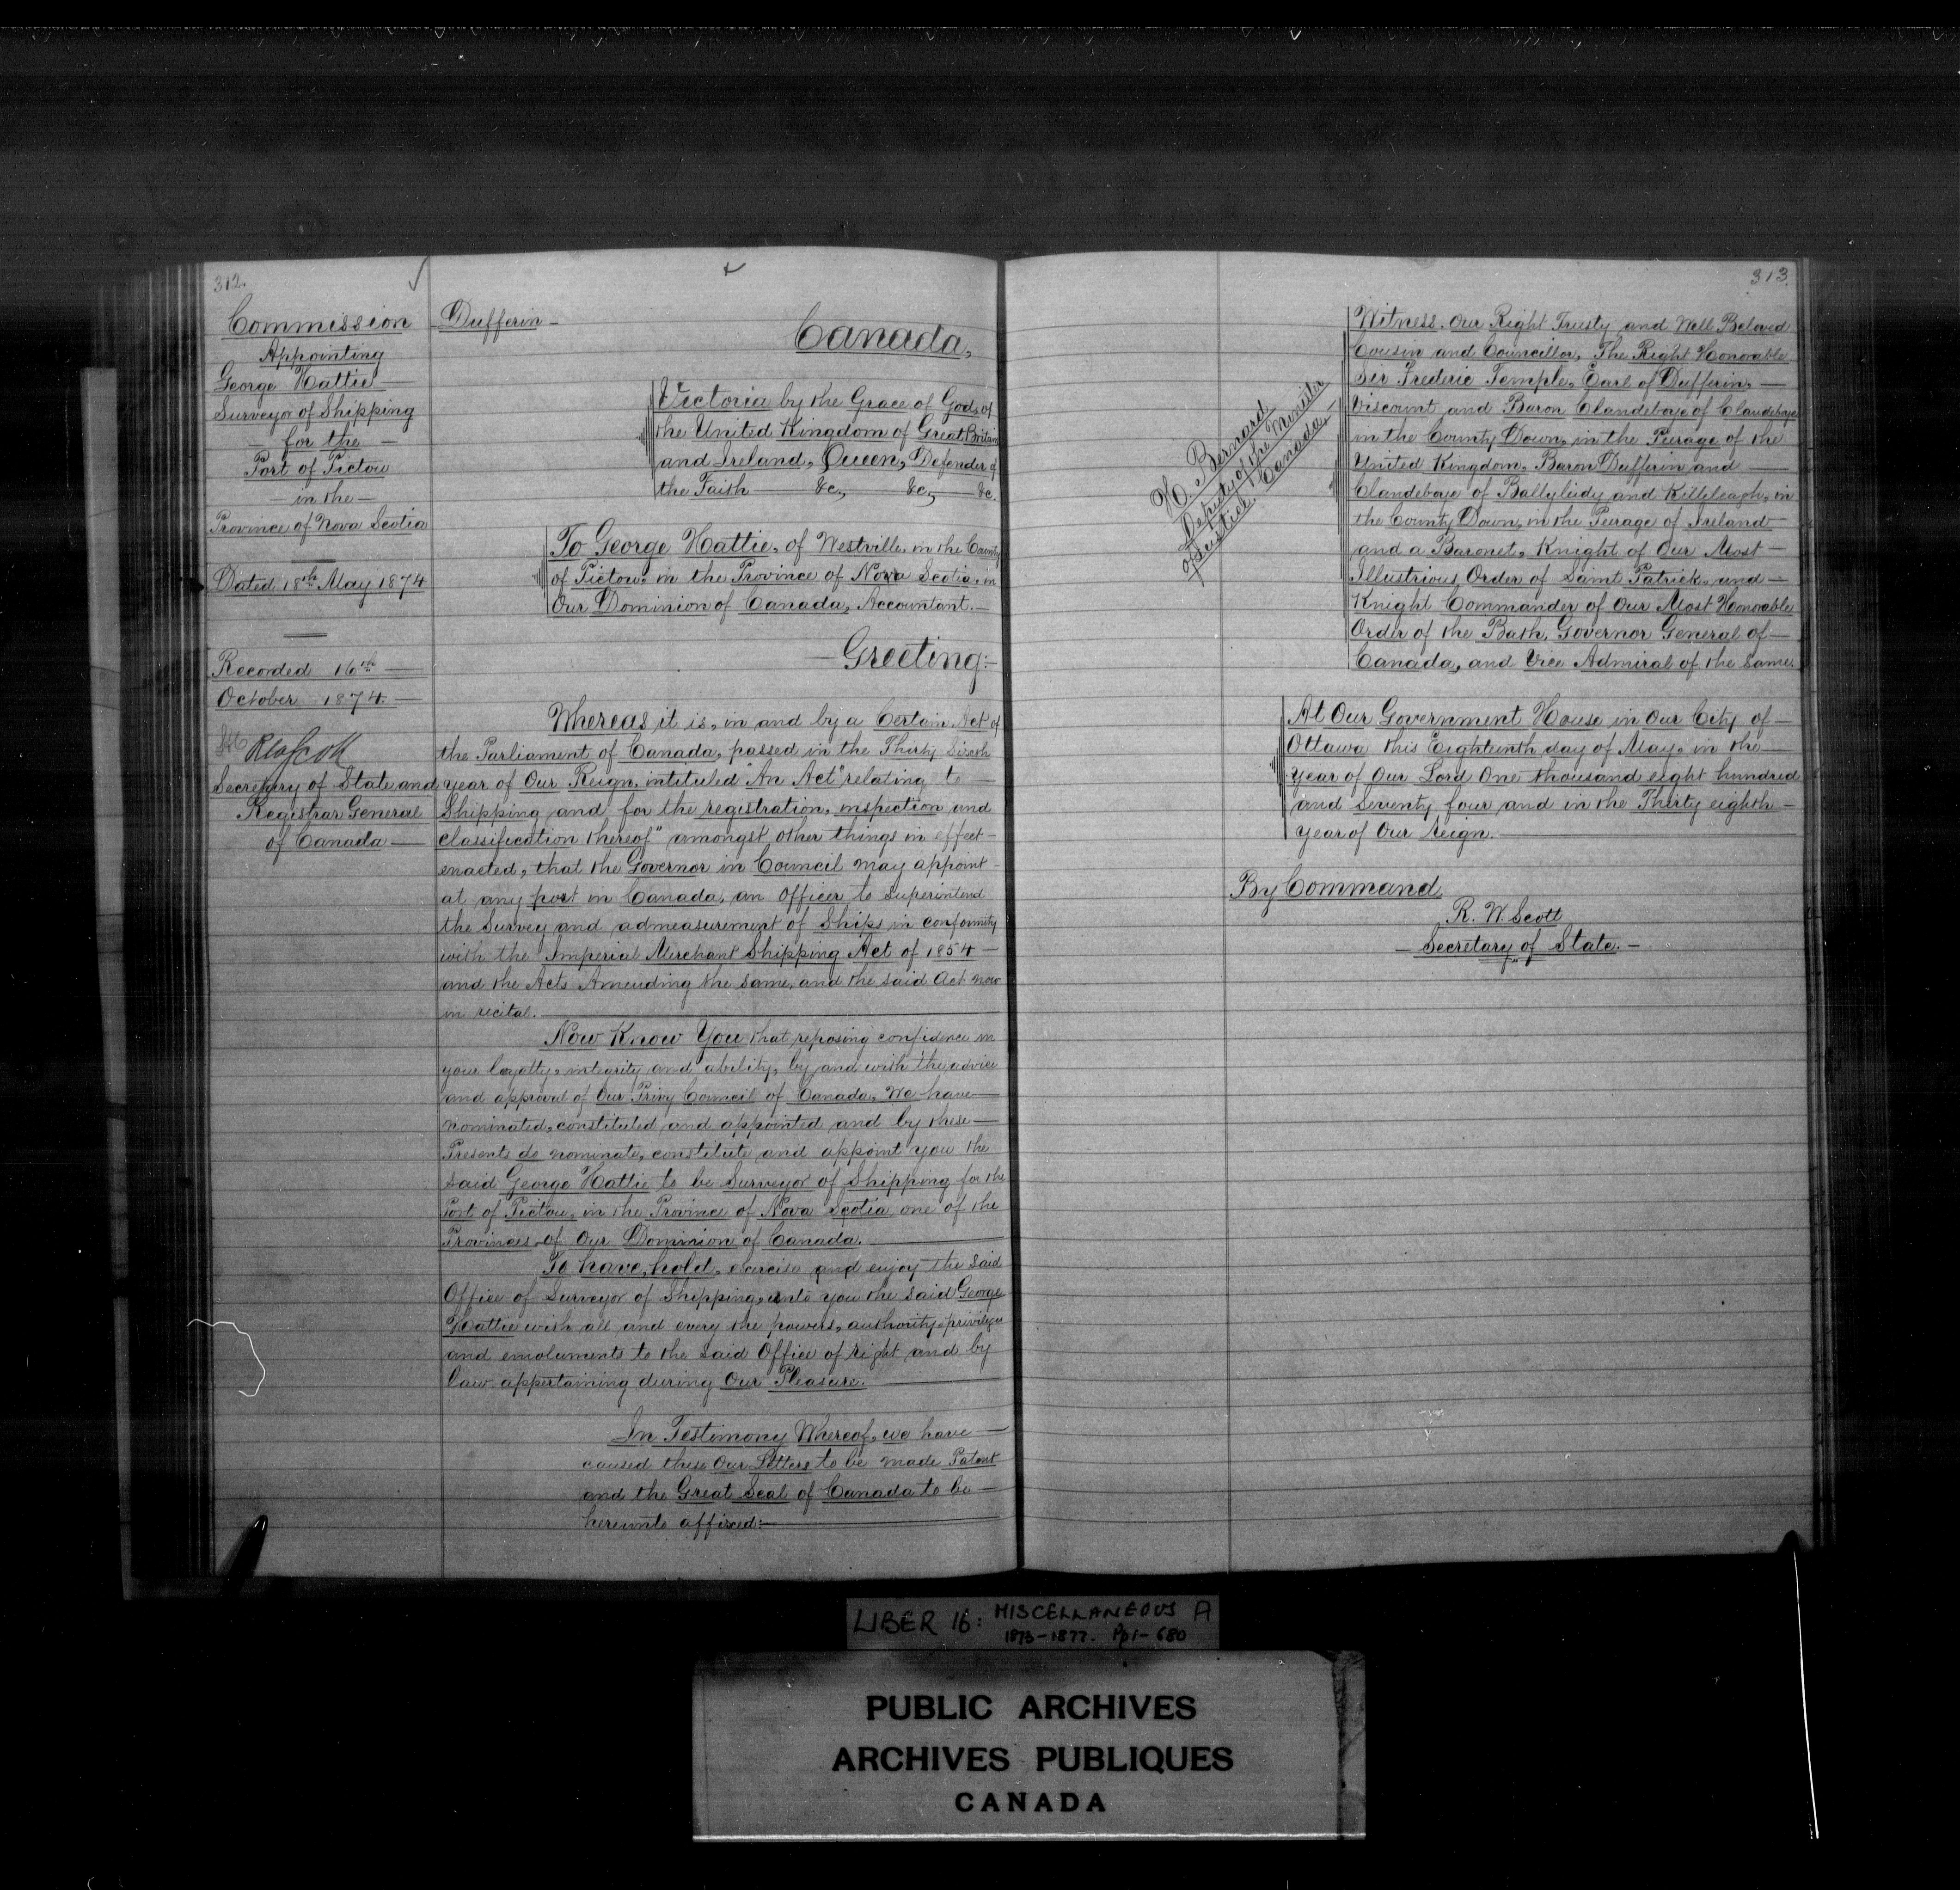 312.
Commission
Appointing
George Hattie
Surveyor of Shipping
for the
Port of Pictou
in the
Province of Nova Scotia
Dated 18th May 1874
Recorded 16th
October 1874.
RWScott
Secretary of State and
Registrar General
of Canada
Dufferin
Canada,
Victoria by the Grace of God, of
the United Kingdom of Great Britain
and Ireland, Queen, Defender of
the Faith &c, &c, &c.
To George Hattie, of Westville, in the County
of Pictou, in the Province of Nova Scotia, in
Our Dominion of Canada, Accountant.
Greeting:
Whereas it is, in and by a Certain Act of
the Parliament of Canada, passed in the Thirty Sixth
year of Our Reign, intituled "An Act" relating to
Shipping and for the registration, inspection and
classification thereof" amongst other things in effect
enacted, that the Governor in Council may appoint
at any port in Canada, an Officer to Superintend
the Survey and admeasurement of Ships in conformity
with the Imperial Merchant Shipping Act of 1854
and the Acts Amending the same, and the said Act now
in recital.
Now Know You that reposing confidence in
your loyalty, integrity and ability, by and with the advice
and approval of Our Privy Council of Canada, We have
nominated, constituted and appointed and by these
Presents do nominate, constitute and appoint you the
said George Hattie to be Surveyor of Shipping for the
Port of Pictou, in the Province of Nova Scotia one of the
Provinces of Our Dominion of Canada.
To have, hold, exercise and enjoy the said
Office of Surveyor of Shipping, unto you the said George
Hattie with all and every the powers, authority, privileges
and emoluments to the said Office of right and by
law appertaining during Our Pleasure.
In Testimony Whereof, we have
caused these Our Letters to be made Patent
and the Great Seal of Canada to be
hereunto affixed:
313.
H. Bernard
Deputy of the Minister
of Justice. Canada.
Witness, Our Right Trusty and Well Beloved
Cousin and Councillor, The Right Honorable
Sir Frederic Temple, Earl of Dufferin,
Viscount and Baron Clandeboye of Clandeboye
in the County Down, in the Peerage of the
United Kingdom, Baron Dufferin and
Clandeboye of Ballyleidy and Killeleagh, in
the County Down, in the Peerage of Ireland
and a Baronet, Knight of Our Most
Illustrious Order of Saint Patrick, and
Knight Commander of Our Most Honorable
Order of the Bath, Governor General of
Canada, and Vice Admiral of the same.
At Our Government House in Our City of
Ottawa this Eighteenth day of May, in the
Year of Our Lord One thousand eight hundred
and seventy four and in the Thirty eighth
year of Our reign.
By Command
R. W. Scott
Secretary of State.
LIBER 16: MISCELLANEOUS A
1873-1877. Pp1-680
PUBLIC ARCHIVES
ARCHIVES PUBLIQUES
CANADA